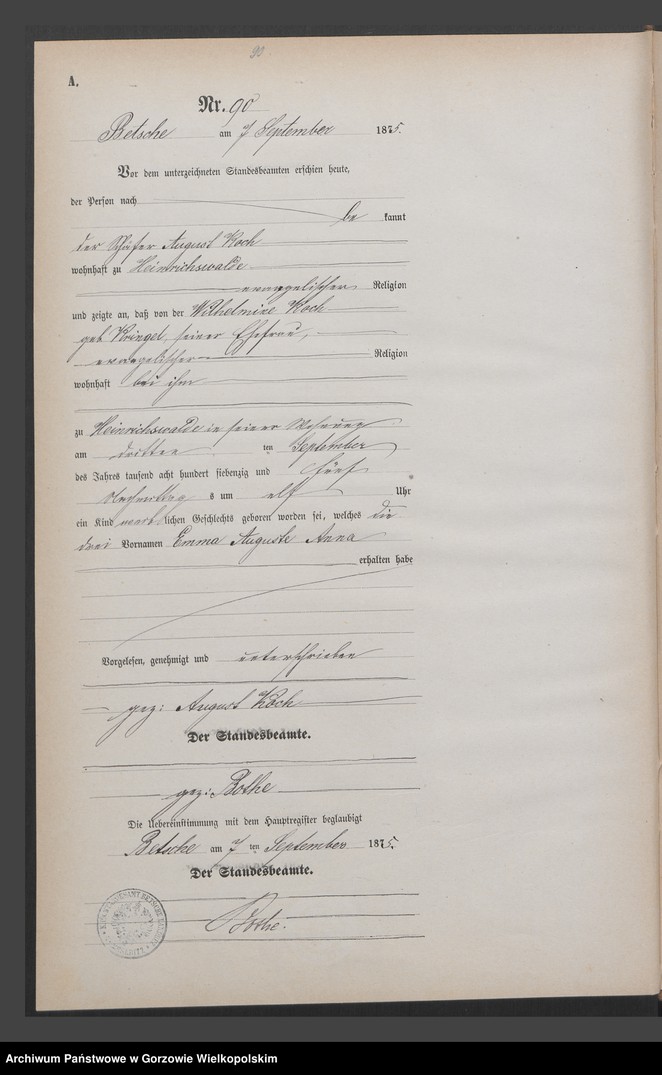 90
A.
Nr. 90
Betsche am 7 September 1875.
Vor dem unterzeichneten Standesbeamten erschien heute,
der Person nach
be kannt
der Schäfer August Koch
wohnhaft zu Heinrichswalde
evangelischer Religion
und zeigte an, daß von der Wilhelmine Koch
geb Kringel, seiner Ehefrau,
evangelischer Religion
wohnhaft bei ihm
zu Heinrichswalde in seiner Wohnung
am dritten ten September
des Jahres tausend acht hundert siebenzig und fünf
Nachmittag s um elf Uhr
ein Kind weiblichen Geschlechts geboren worden sei, welches die
drei Vornamen Emma Auguste Anna
erhalten habe
Vorgelesen, genehmigt und unterschrieben
gez: August Koch
Der Standesbeamte.
gez: Bothe
Die Uebereinstimmung mit dem Hauptregister beglaubigt
Betsche am 7 ten September 1875.
Der Standesbeamte.
Bothe.
STANDESAMT BETSCHE
Archiwum Państwowe w Gorzowie Wielkopolskim